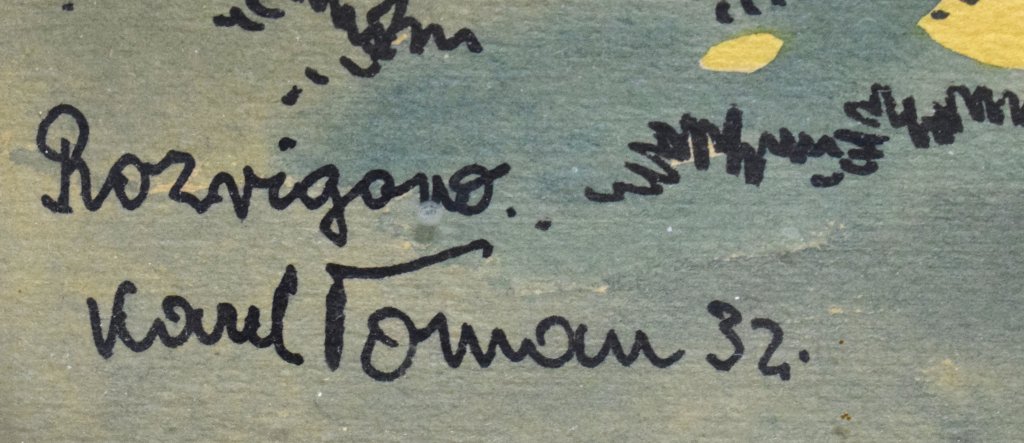 Rozvigovo.
Karel Toman 32.